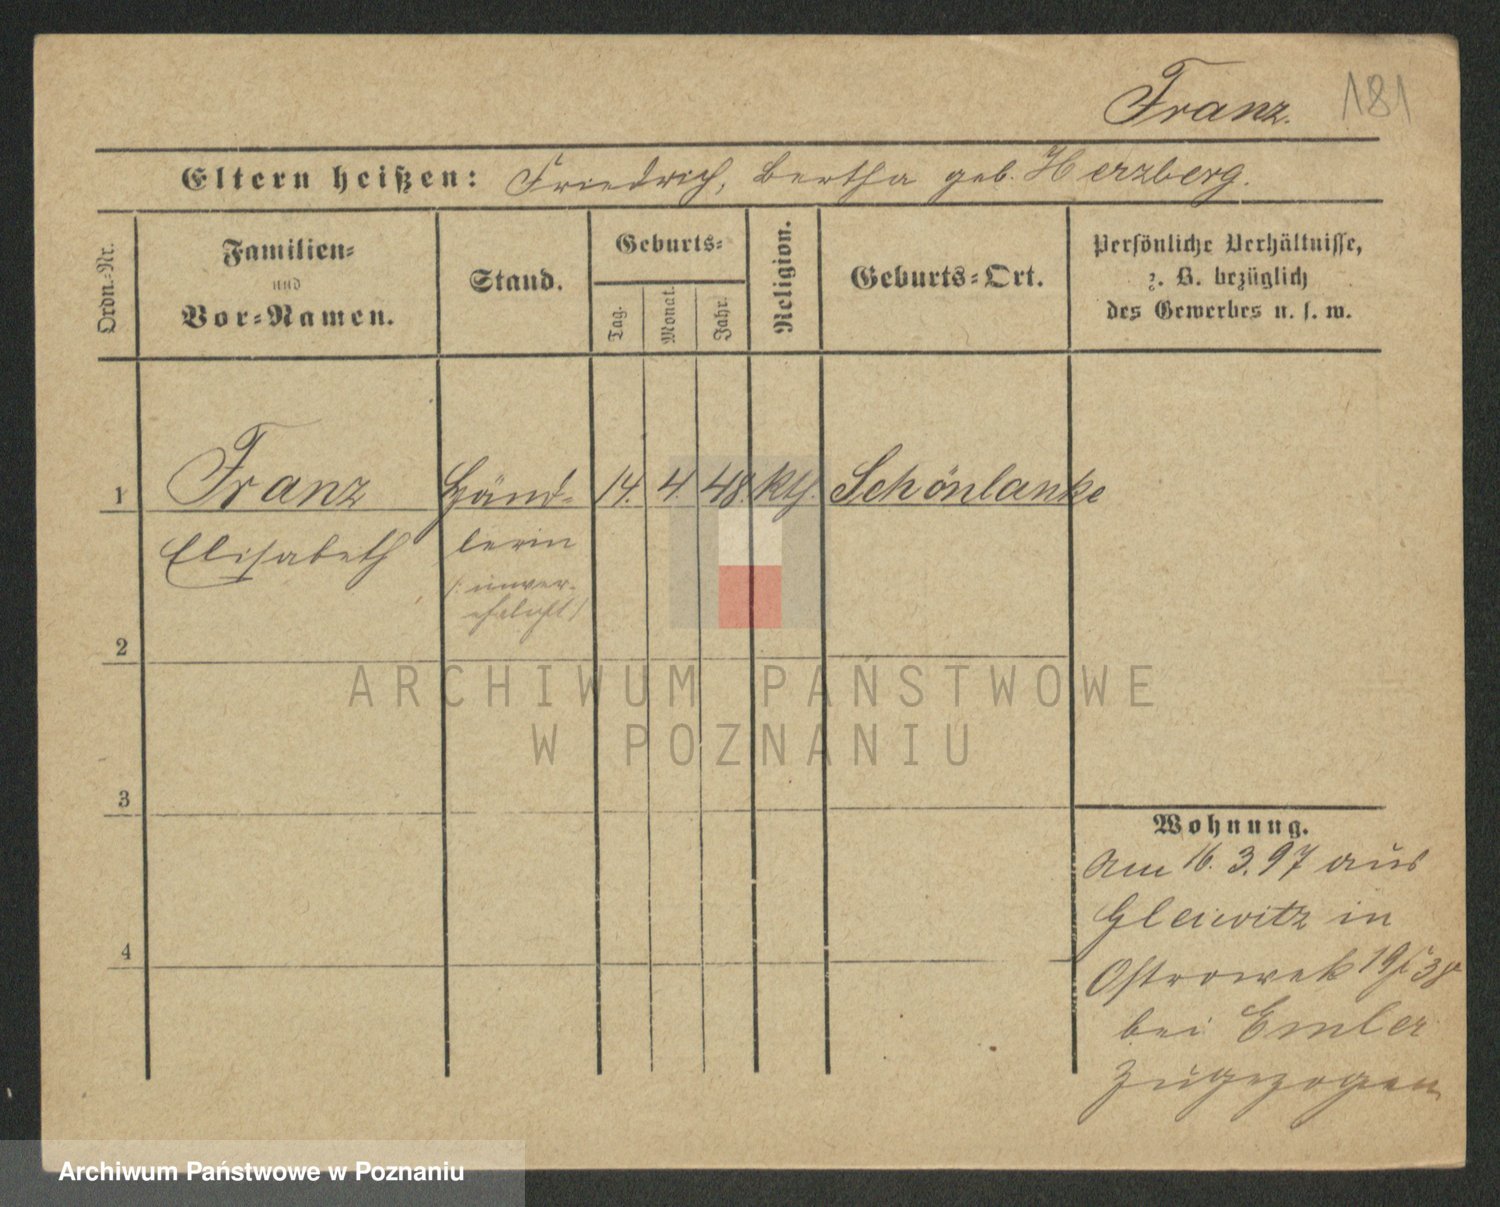 Franz. 181
Eltern heißen: Friedrich, Bertha geb. Herzberg.
Ordn.-Nr.
Familien-
und
Vor-Namen.
Stand.
Geburts-
Tag.
Monat.
Jahr.
Religion.
Geburts-Ort.
Persönliche Verhältnisse,
z. B. bezüglich
des Gewerbes u. s. w.
1 Franz Händ- 14. 4. 48. kth. Schönlanke
Elisabeth lerin
(: unver-
ehelicht)
2
3
4
Wohnung.
Am 16. 3. 97 aus
Gleiwitz in
Ostrowek 19/38
bei Emler
zugezogen
ARCHIWUM PAŃSTWOWE
W POZNANIU
Archiwum Państwowe w Poznaniu